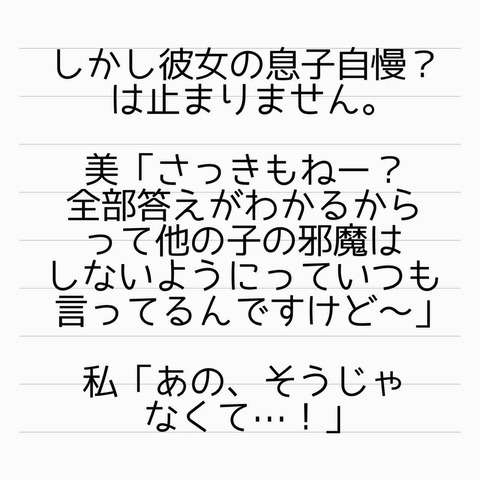 しかし彼女の息子自慢？
は止まりません。
美「さっきもねー？
全部答えがわかるから
って他の子の邪魔は
しないようにっていつも
言ってるんですけど～」
私「あの、そうじゃ
なくて…！」